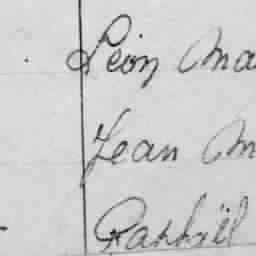 Léon Ma
Jean M
Raphaël